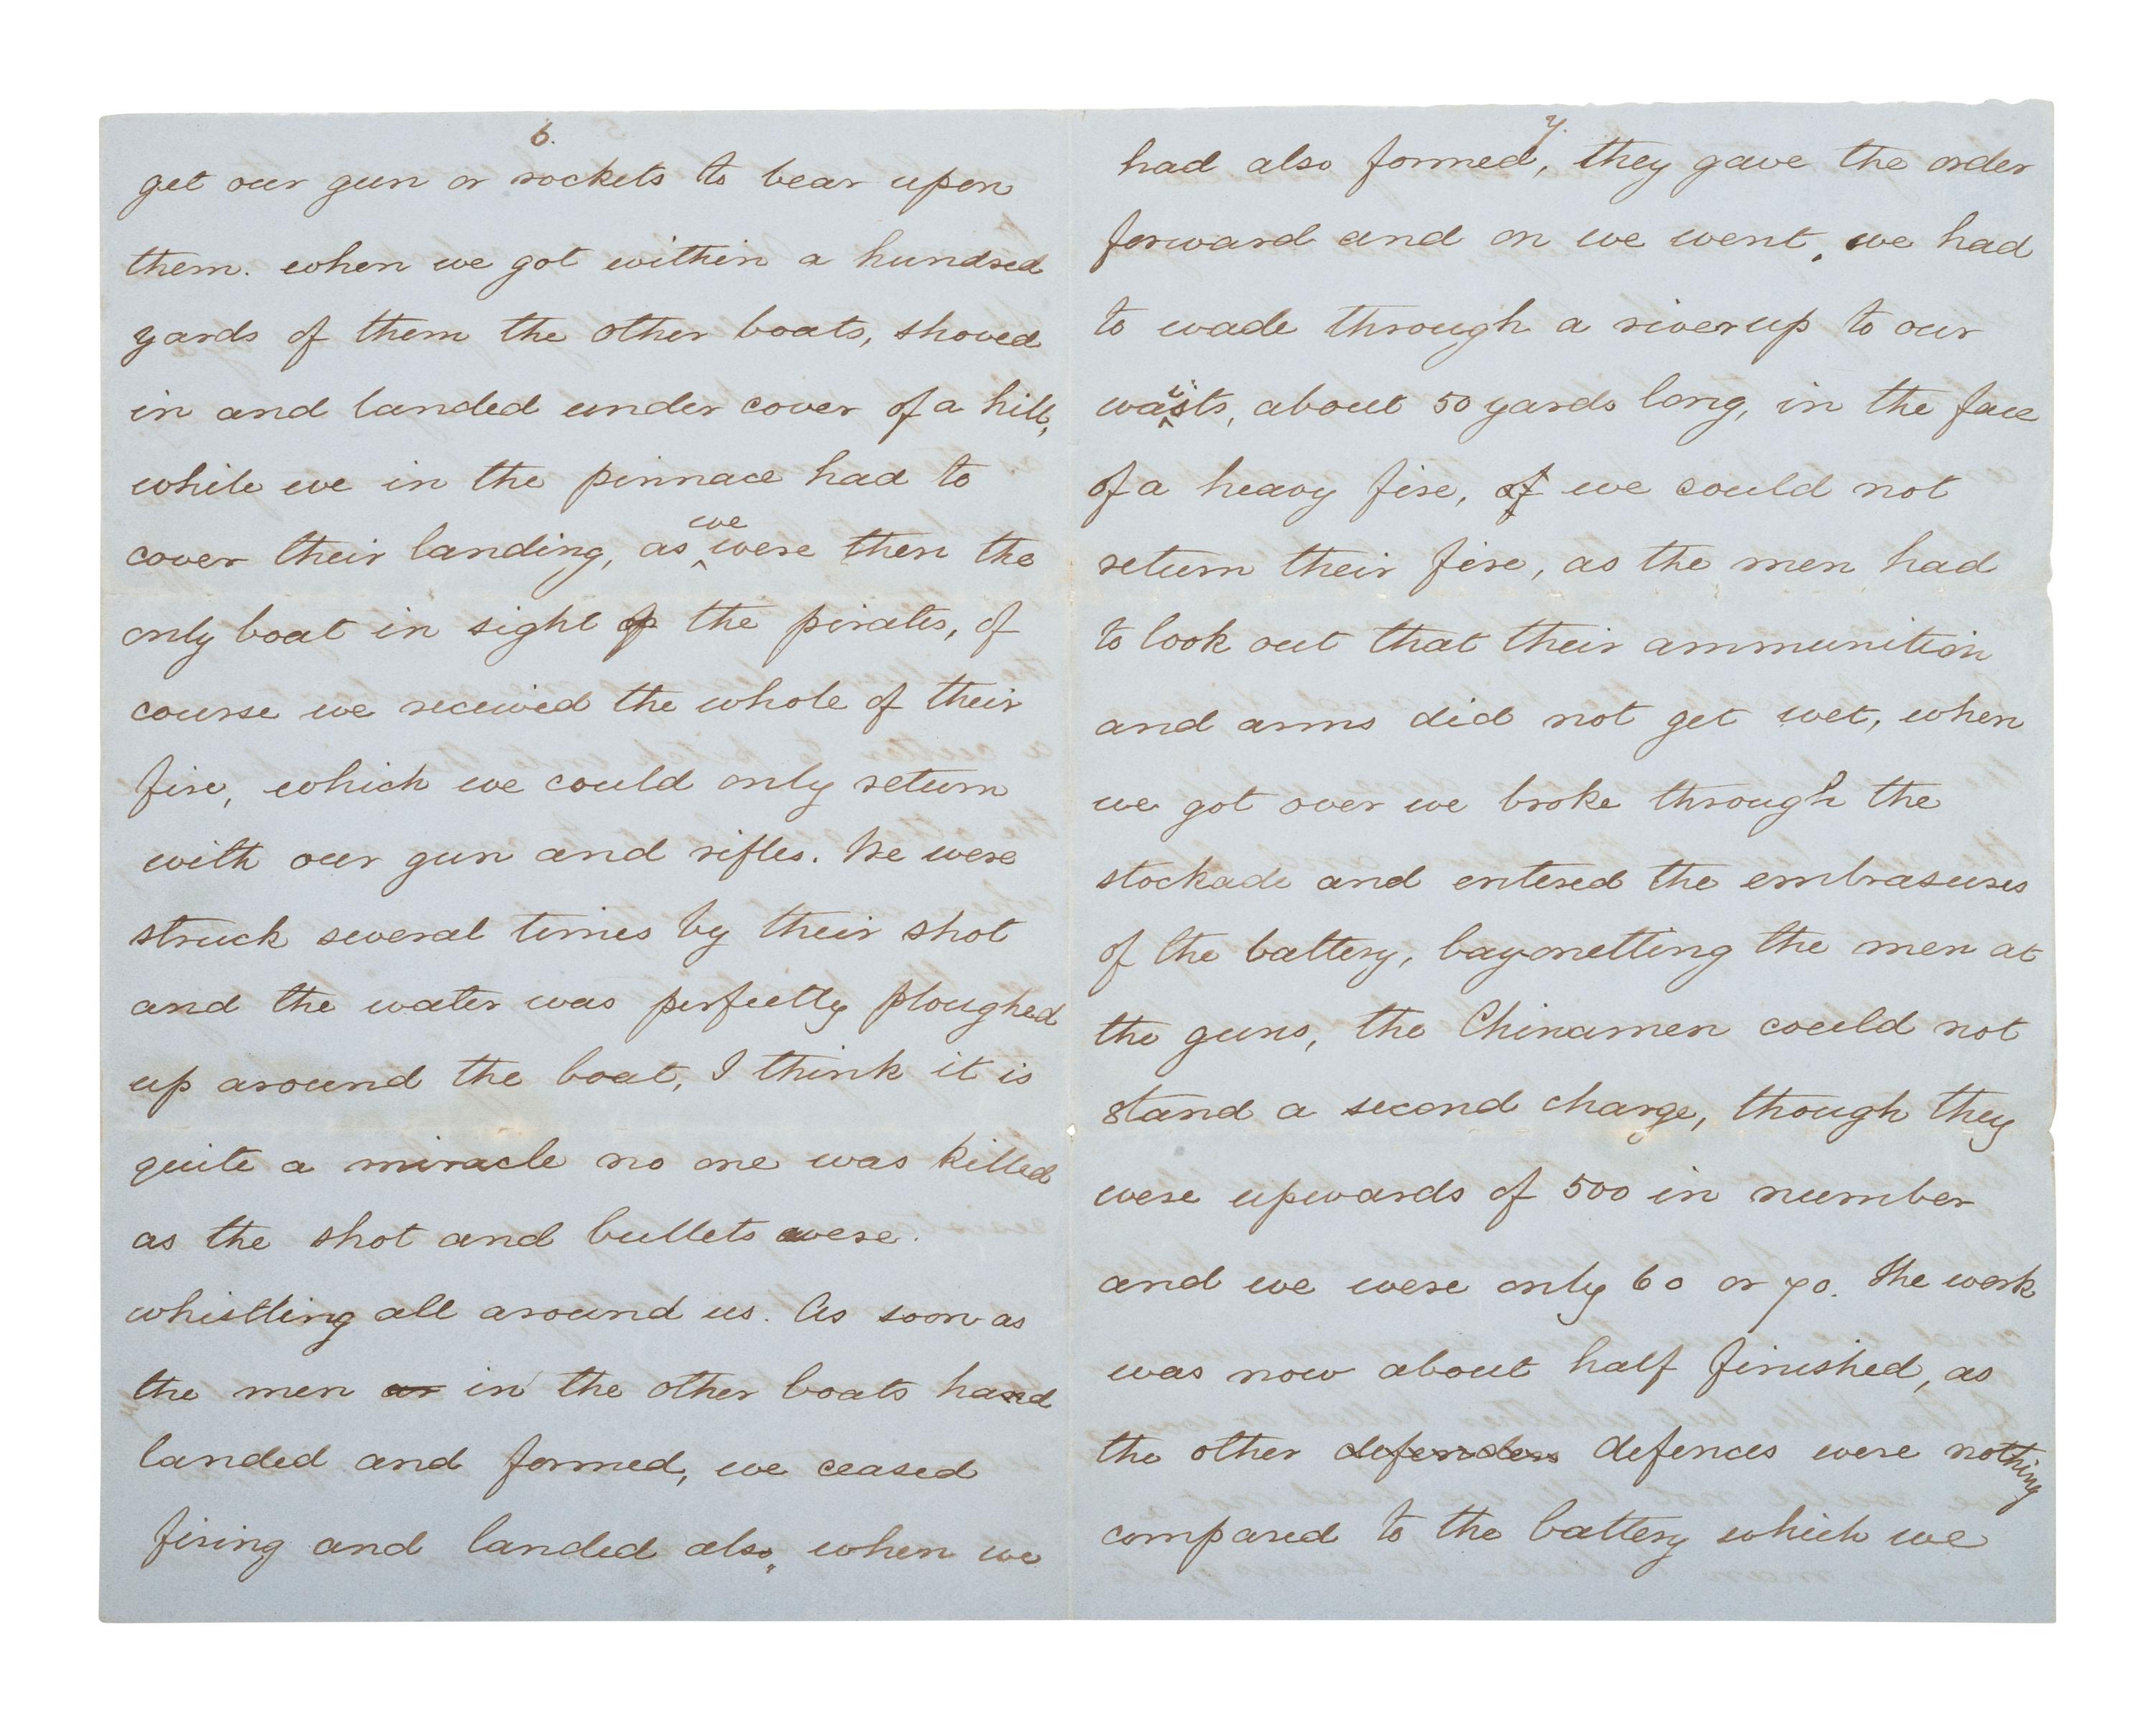 6.
get our gun or rockets to bear upon
them. when we got within a hundred
yards of them the other boats, shoved
in and landed under cover of a hill,
while we in the pinnace had to
cover their landing, as we were then the
only boat in sight of the pirates, of
course we received the whole of their
fire, which we could only return
with our gun and rifles. We were
struck several times by their shot
and the water was perfectly ploughed
up around the boat, I think it is
quite a miracle no one was killed
as the shot and bullets were.
whistling all around us. As soon as
the men in the other boats had
landed and formed, we ceased
firing and landed also, when we
7.
had also formed, they gave the order
forward and on we went, we had
to wade through a river up to our
waists, about 50 yards long, in the face
of a heavy fire, we could not
return their fire, as the men had
to look out that their ammunition
and arms did not get wet, when
we got over we broke through the
stockade and entered the embrasures
of the battery, bayonetting the men at
the guns, the Chinamen could not
stand a second charge, though they
were upwards of 500 in number
and we were only 60 or 70. The work
was now about half finished, as
the other defenders defences were nothing
compared to the battery which we